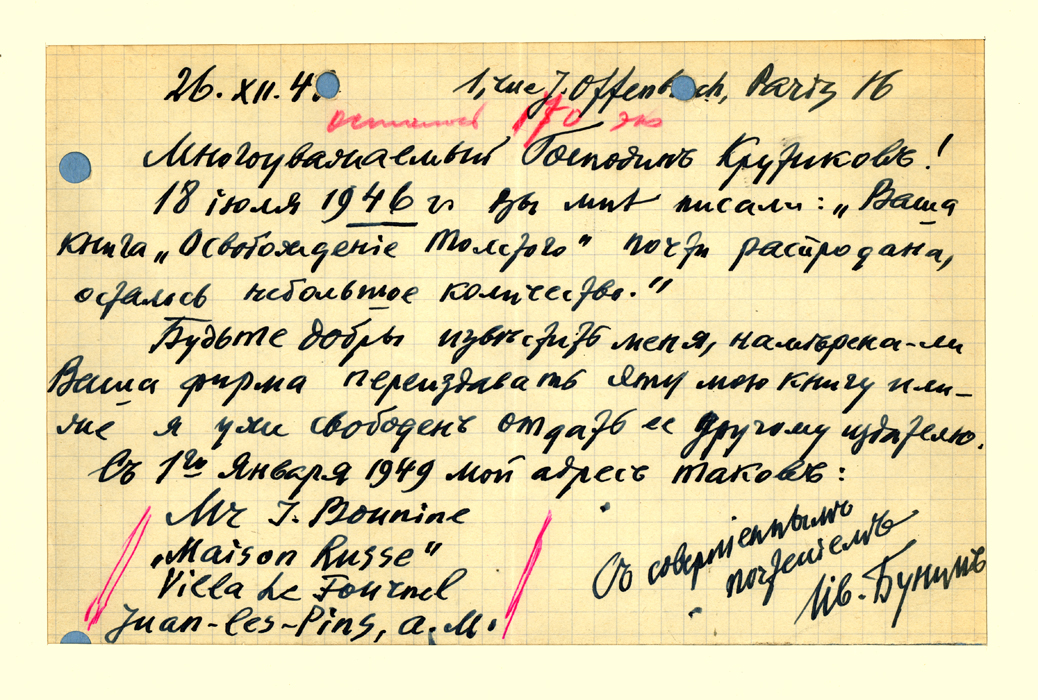 26. XII. 4 1, rue J. Offenbach, Paris 16
осталось 170 экз
Многоуважаемый Господинъ Крузиковъ!
18 iюля 1946 г. Вы мнѣ писали: „Ваша
книга „Освобожденiе Толстого" почти распродана,
осталось небольшое количество."
Будьте добры извѣстить меня, намѣрена-ли
Ваша фирма переиздавать эту мою книгу или-
же я уже свободенъ отдать ее другому издателю.
Съ 1го Января 1949 мой адресъ таковъ:
Mr J. Bounine
„Maison Russe"
Villa Le Fournel
Juan-les-Pins, A. M.
Съ совершеннымъ
почтенiемъ
Ив. Бунинъ